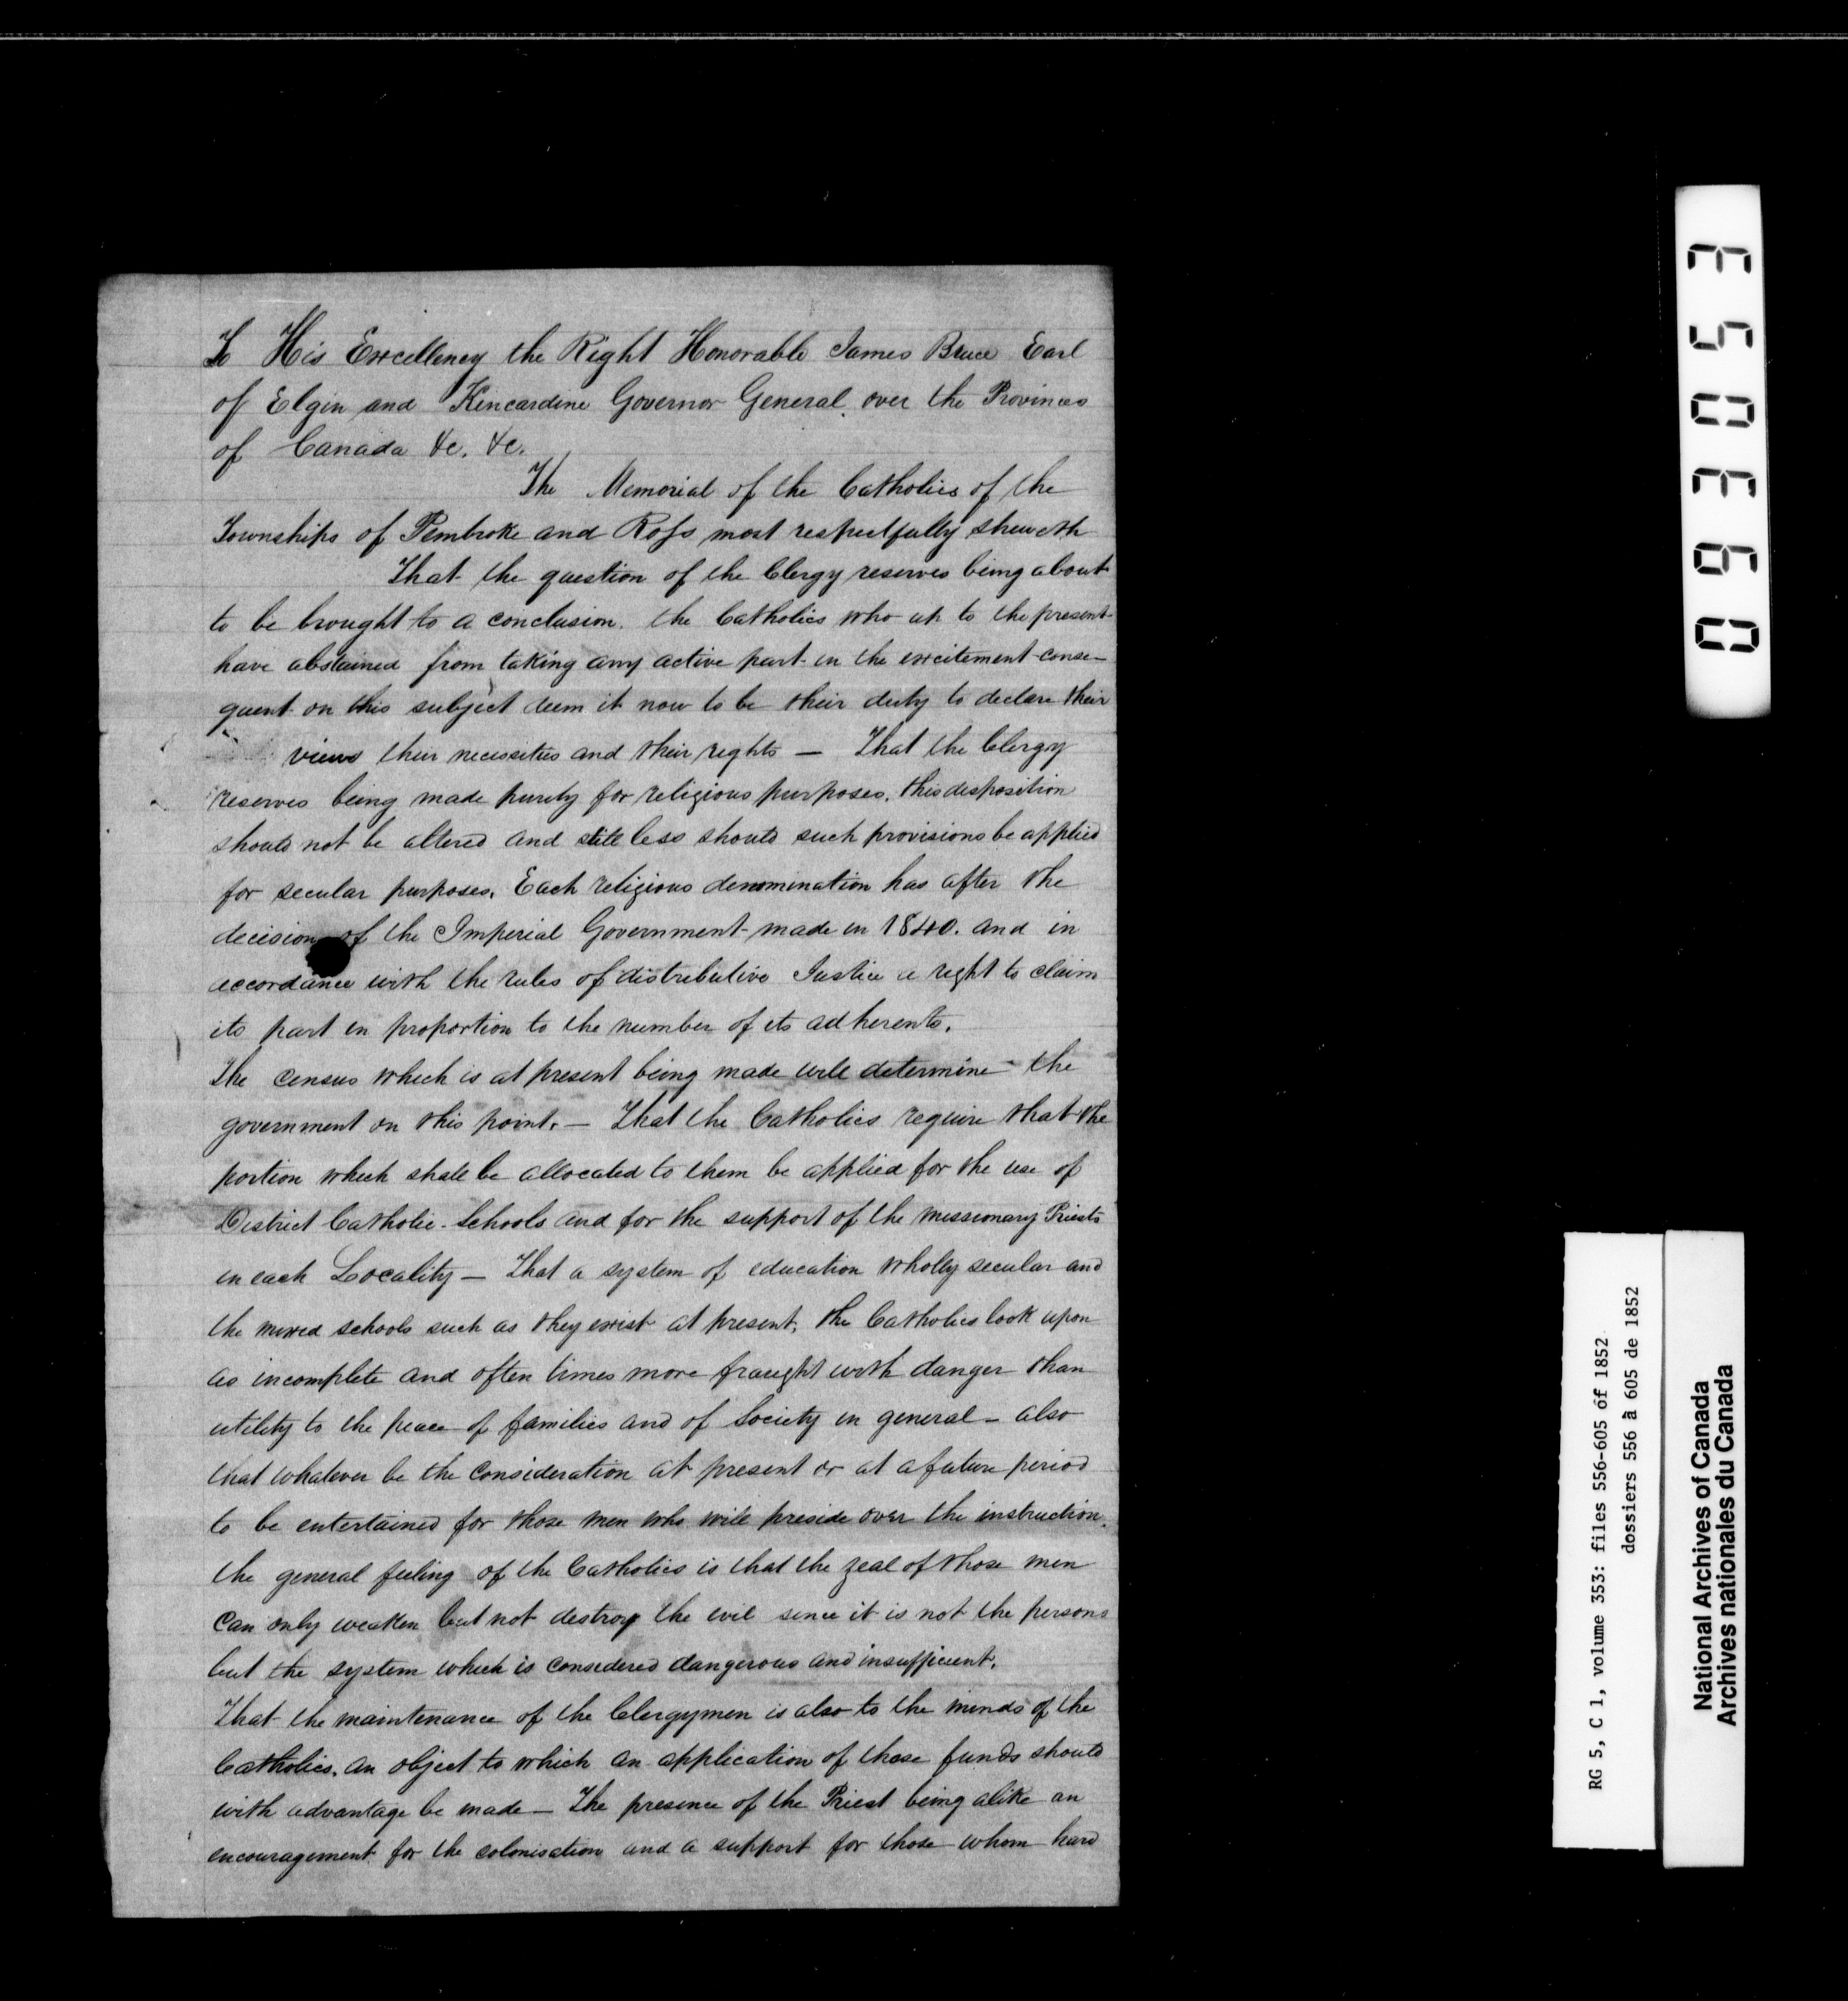 To His Excellency the Right Honorable James Bruce Earl
of Elgin and Kincardine Governor General over the Provinces
of Canada &c. &c.
The Memorial of the Catholics of the
Townships of Pembroke and Ross most respectfully sheweth
That the question of the Clergy reserves being about
to be brought to a conclusion. the Catholics who up to the present
have abstained from taking any active part in the excitement conse-
quent on this subject deem it now to be their duty to declare their
views their necessities and their rights — That the Clergy
reserves being made purely for religious purposes. this disposition
should not be altered and still less should such provisions be applied
for secular purposes. Each religious denomination has after the
decision of the Imperial Government made in 1840. and in
accordance with the rules of distributive Justice a right to claim
its part in proportion to the number of its adherents.
The census which is at present being made will determine the
government on this point. — That the Catholics require that the
portion which shall be allocated to them be applied for the use of
District Catholic Schools and for the support of the missionary Priests
in each Locality — That a system of education wholly secular and
the mixed schools such as they exist at present, the Catholics look upon
as incomplete and often times more fraught with danger than
utility to the peace of families and of Society in general — also
that whatever be the consideration at present or at a future period
to be entertained for those men who will preside over the instruction.
the general feeling of the Catholics is that the zeal of those men
can only weaken but not destroy the evil since it is not the persons
but the system which is considered dangerous and insufficient.
That the maintenance of the Clergymen is also to the minds of the
Catholics. an object to which an application of these funds should
with advantage be made — The presence of the Priest being alike an
encouragement for the colonisation and a support for those whom hard
093053
RG 5, C 1, volume 353: files 556-605 of 1852
dossiers 556 à 605 de 1852
National Archives of Canada
Archives nationales du Canada